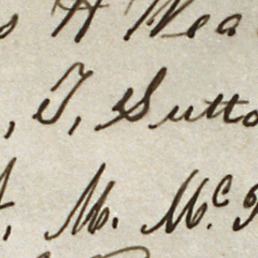 s H Wea
, J, Sutto
, M. Mc.